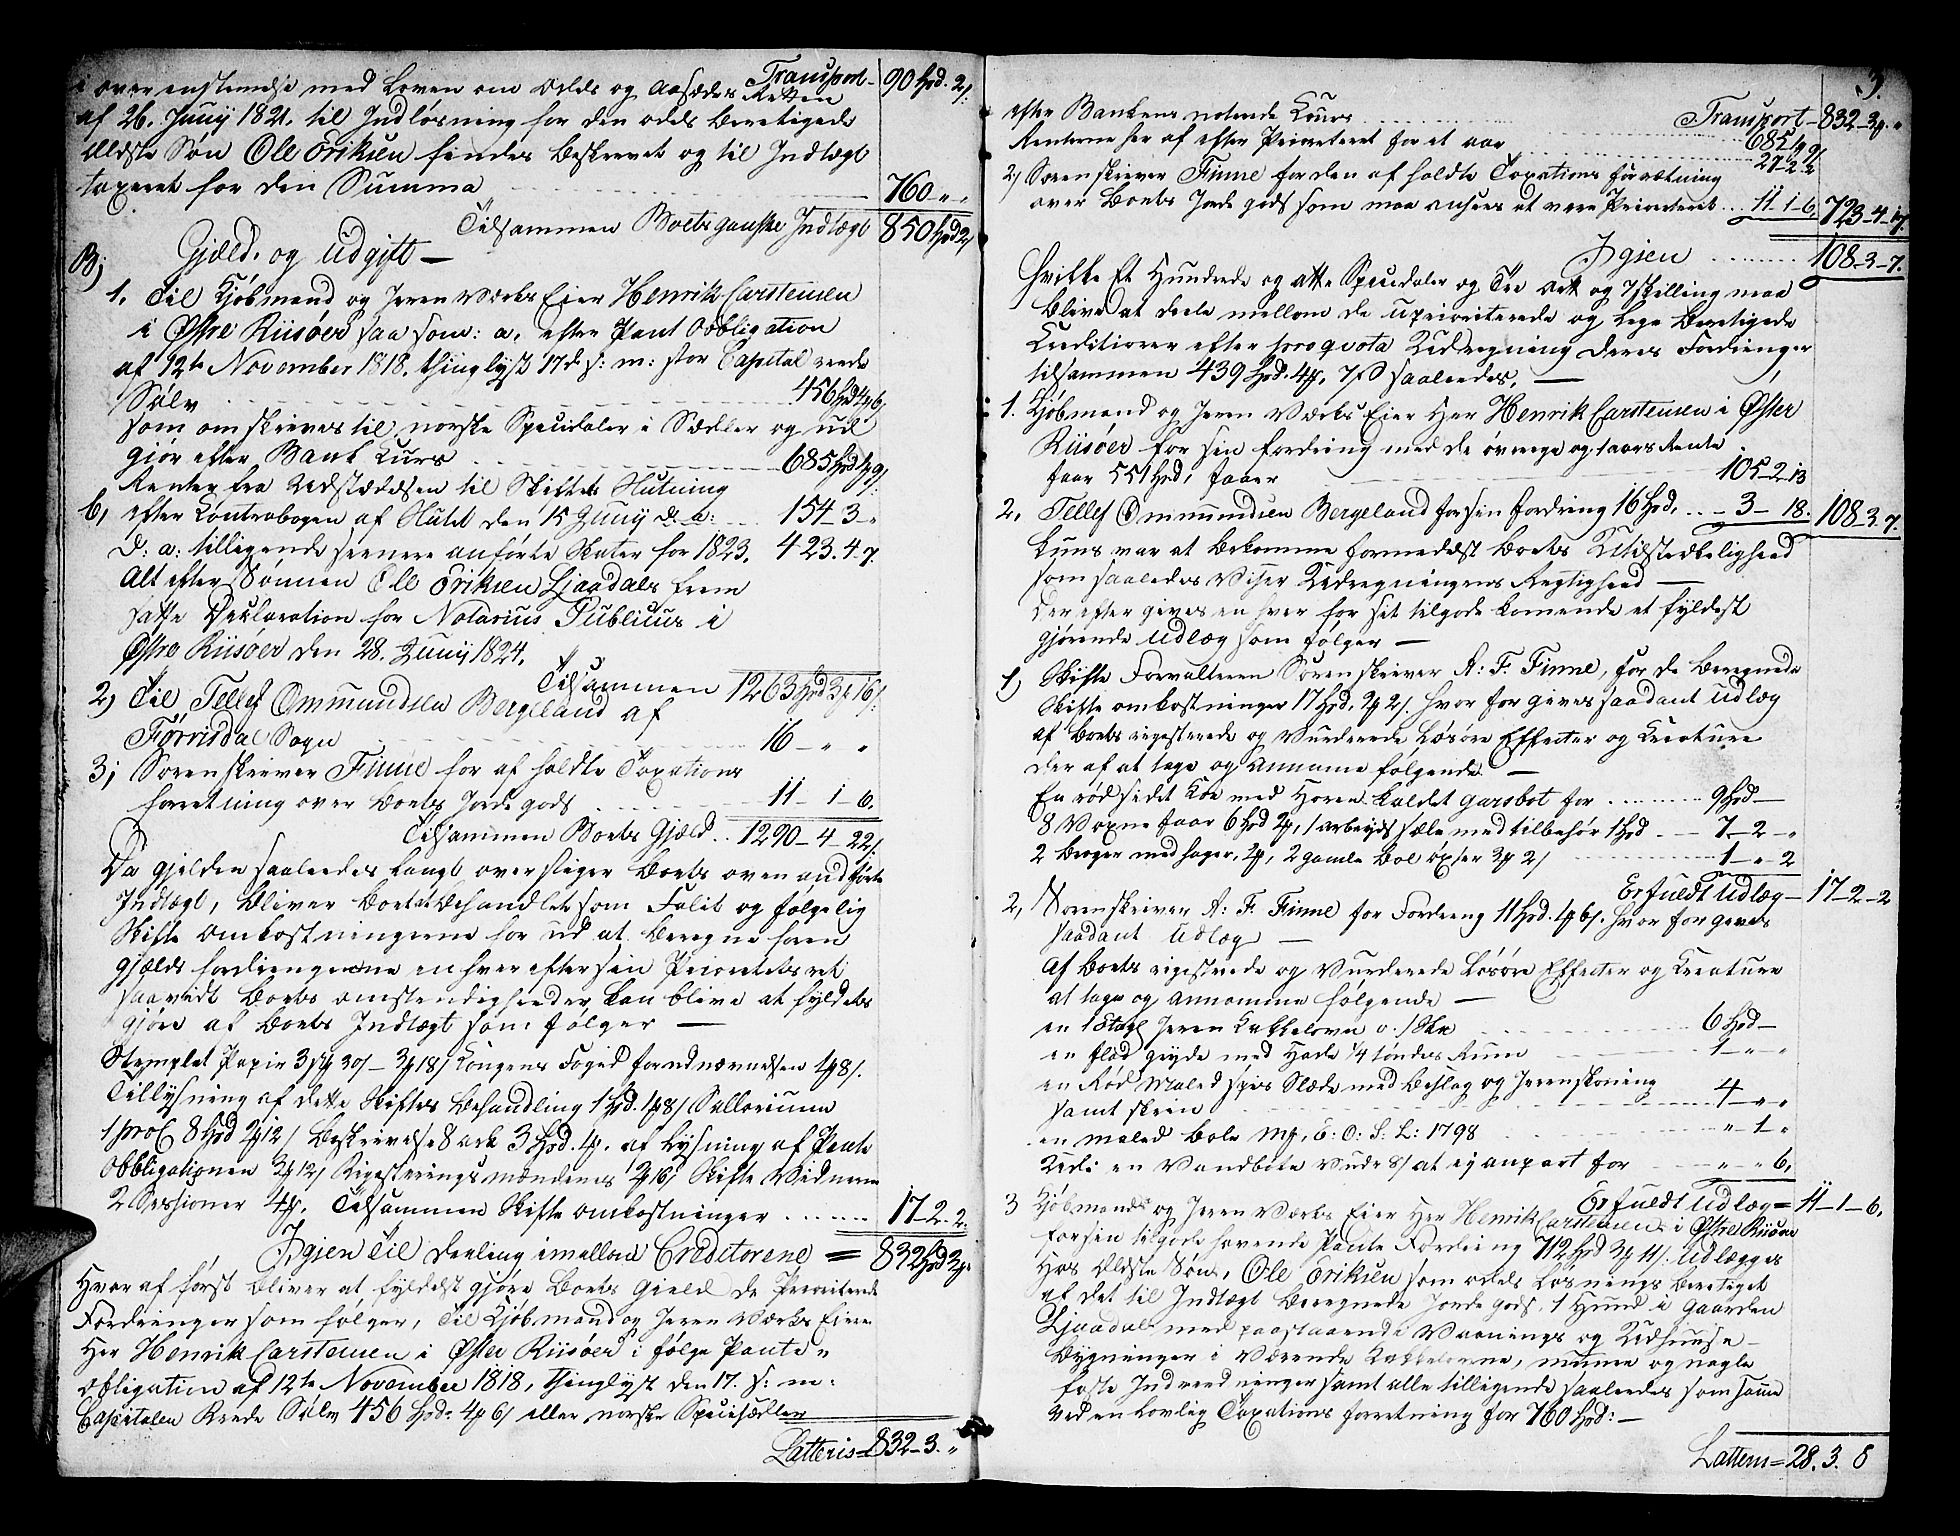 Transport 90 Spd. 2 /:
i overenstemelse med Loven om Odels og Aasædes Retten
af 26. Juny 1821. til Indløsning for den odels Beretigede
Eldste Søn Ole Eriksen findes Beskrevet og til Indtægt
taxeret for den Summa 760 " "
Tilsammen Boets ganske Indtægt 850 Spd 2/
B; Gjæld. og Udgift —
1. Til Kjøbmand og Jern Værks Eier Henrik Carstensen
i Østre Riisøer saa som: a. efter Pant Obligation
af 12te November 1818. thinglyst 17d s: m: stor Capital rede
Sølv 456 Spd 4 # 6/
som omskrives til norske Speciedaler i Sædler og ud
giør efter Bank Kurs 685 Spd 1 # 9/
Renter fra Udstædelsen til Skiftets Slutning
b, efter Contrabogen af Sluttet den 15 Juny d. a: 154 – 3 – "
d: a: tilligende seenere anførte Skater for 1823. 423. 4. 7.
Alt efter Sønnen Ole Eriksen Ljaadals frem
satte Declaration for Notarius Publicus i
Østre Riisøer den 28. Juny 1824.
Tilsammen 1263 Spd 3 # 16/.
2) Til Tellef Ommundsen Bergeland af
Førrisdal Sogn 16 – " "
3; Sorenskriver Finne for afholdte Taxations
forretning over Boets Jordegods 11 – 1 – 6.
Tilsammen Boets Gjæld .. 1290 – 4 – 22/.
Da gjelden saaledes langt overstiger Boets oven andførte
Indtægt, bliver Boet at Behandles som Falit og følgelig
Skifte Omkostningerne for ud at Beregne foren
gjælds fordringerne enhver efter sin Prioritets ret
saavidt Boets omstendigheder kan blive at fyldest
gjøre af Boets Indtægt som følger —
Stemplet Papir 3 # 30/ – 3 # 18/ Kongens Foged for udnævnelsen 1 # 8/.
Tillysning af dette Skiftes Behandling 1 Spd. 1 # 8/ Sallarium
1 proC 8 Spd 2 # 12/ Beskrivelse 8 ark 3 Spd. 4 #. af Lysning af Pante
Obligationen 3 # 12/ Rigesterings mændenes 2 # 16/ Skifte Vidnerne
2 Sessioner 4 #. Tilsammen Skifte omkostninger ...... 17 – 2. 2.
Igjen Til Deeling imellem Creditorene = 832 Spd 3 #
Hvor af først bliver at fyldest gjøre Boets Gield de Prioriterede
Fordringer som følger, Til Kjøbmand og Jern Værks Eieren
Her Henrik Carstensen i Øster Riisøer i følge Pante "
Obligation af 12te November 1818, thinglyst den 17. s: m:
Capitalen Reede Sølv 456 Spd. 4 # 6/ eller norske Speciesædler
Latteris 832 – 3. "
3.
Transport – 832 – 3 # "
efter Bankens noterede Kurs 685 1 # 9/
Renterne her af efter Prioritetet for et aar 27 – 2 –
2) Sorenskriver Finne for den af holdte Taxations foreretning
over Boets Jordegods som maa ansees at være Prioriteret ... 11 – 1 – 6. 723 – 4 – 17.
Igien ........ 108 – 3 – 7.
hvilke Et Hundrede og otte Speciedaler og Tre ort og 7 skilling maa
Blive at deele mellem de upriioriterede og lige Beretigede
Creditorer efter pro qvota Udregning deres Fordringer
tilsammen 439 Spd. 4 #. 7/ saaledes, —
1. Kjøbmand og Jern Værks Eier Her Henrik Carstensen i Øster
Riisøer for sin fordring med de øvrige og 1 aars Rente
faar 551 Spd, faaer 105 – 2 – 13
2. Tellef Ommundsen Bergeland for sin fordring 16 Spd. ... – 3 – 18. 108 – 3 – 7.
Kuns var at bekomme formedelst Boets Utilstrekkelighed
som saaledes Viser Udregningens Rigtighed —
Der efter gives en hver for sit tilgode komende et fyldest
gjørende Udlæg som følger —
1) Skifte Forvalteren Sorenskriver A: F. Finne, for de Beregnede
Skifte omkostninger 17 Spd. 2 # 2/. hvor for gives saadant Udlæg
af Boets rigesterede og Vurderede Løsøre Effecter og Creature
der af at tage og Anname følgende —
En rød sidet Koe med Horen kaldet garsbot for ........ 9 Spd —
8 Voxne faar 6 Spd 2 #, 1 arbeyds sæle med tilbehør 1 Spd ... 7 – 2 – "
2 Berger med hager, 2 #, 2 gamle Bol øxser 3 # 2/ 1 – " 2
Er fuldt Udlæg – 17 – 2 – 2
2, Sorenskriver A: F. Finne for Fordring 11 Spd. 1 # 6/. hvor for gives
saadant Udlæg —
Af Boets rigestrede og Vurderede Løsøre Effecter og Creature
at tage og annamme følgende —
en 1 Etage Jern Kakkelovn 6 Spd —
en flad gryde med Hode 1/4 tøndes Rum 1 – " – "
en Rød Maled spis Slæde med Beslag og Jernskoning
samt skrin 4 – " – "
en maled Bole Mk, E: O: S: L: 1798 " – 1 – "
Udi en Vandbøtte Vurd 8/ at eij anpart for " – " 6.
Er fuldt Udlæg = 11 – 1 – 6.
3 Kjøbmands og Jern Værks Eier Her Henrik Carstensen i Østre Riisøer
for sin tilgode havende Pante Fordring 712 Spd 3 # 11/. Udlægges
Hos Eldste Søn, Ole Eriksen som odels Løsnings beretiget
af det til Indtægt Beregnede Jordegods, 1 Hund i gaarden
Ljaadal med paastaaende Vaanings og Udhuuse
Bygninger i Værende Kakkelovne, muure og nagle
faste Indreedninger samt alle tilligende saaledes som samme
Ved en Lovlig Taxations forretning for 760 Spd: —
Latteris = 28. 3. 8